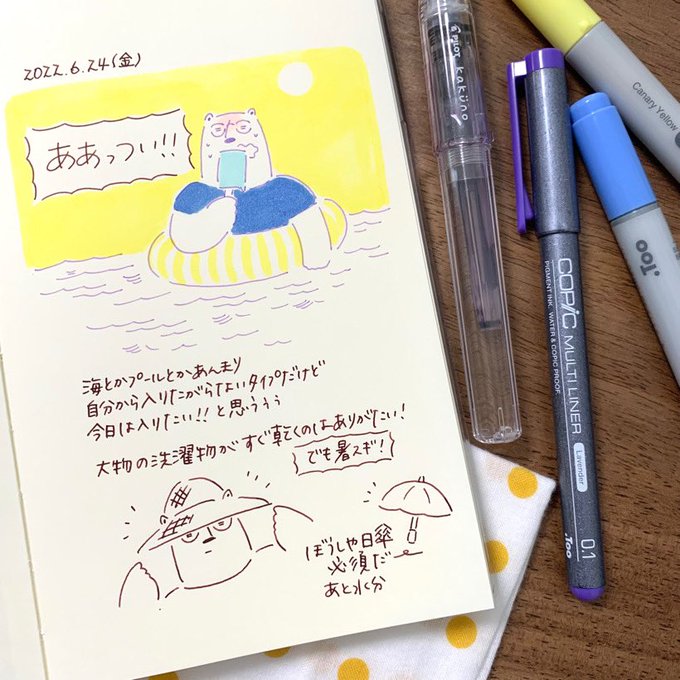 2022.6.24(金)
ああっつい!!
海とかプールとかあんまり
自分から入りたがらないタイプだけど
今日は入りたい!!と思ううぅ
大物の洗濯物がすぐ乾くのはありがたい!
でも暑スギ!
ぼうしや日傘
必須だ
あと水分
PILOT kaküno
COPIC MULTI LINER
PIGMENT INK, WATER & COPIC PROOF
Lavender
0.1
.Too
Canary Yellow
.Too